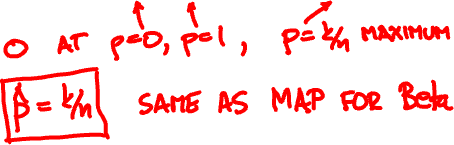 0 AT p=0, p=1, p=k/n MAXIMUM
p̂ = k/n SAME AS MAP FOR Beta